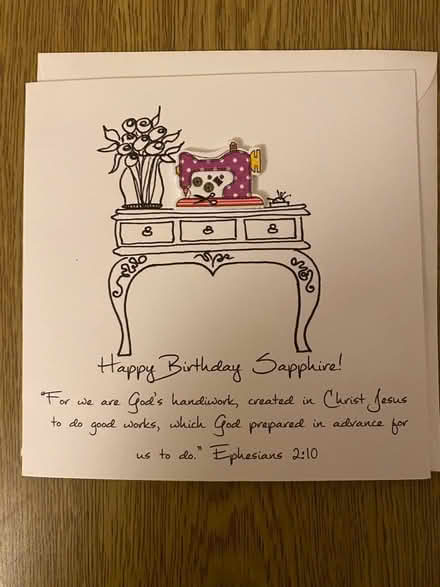 Happy Birthday Sapphire!
"For we are God's handiwork, created in Christ Jesus
to do good works, which God prepared in advance for
us to do." Ephesians 2:10